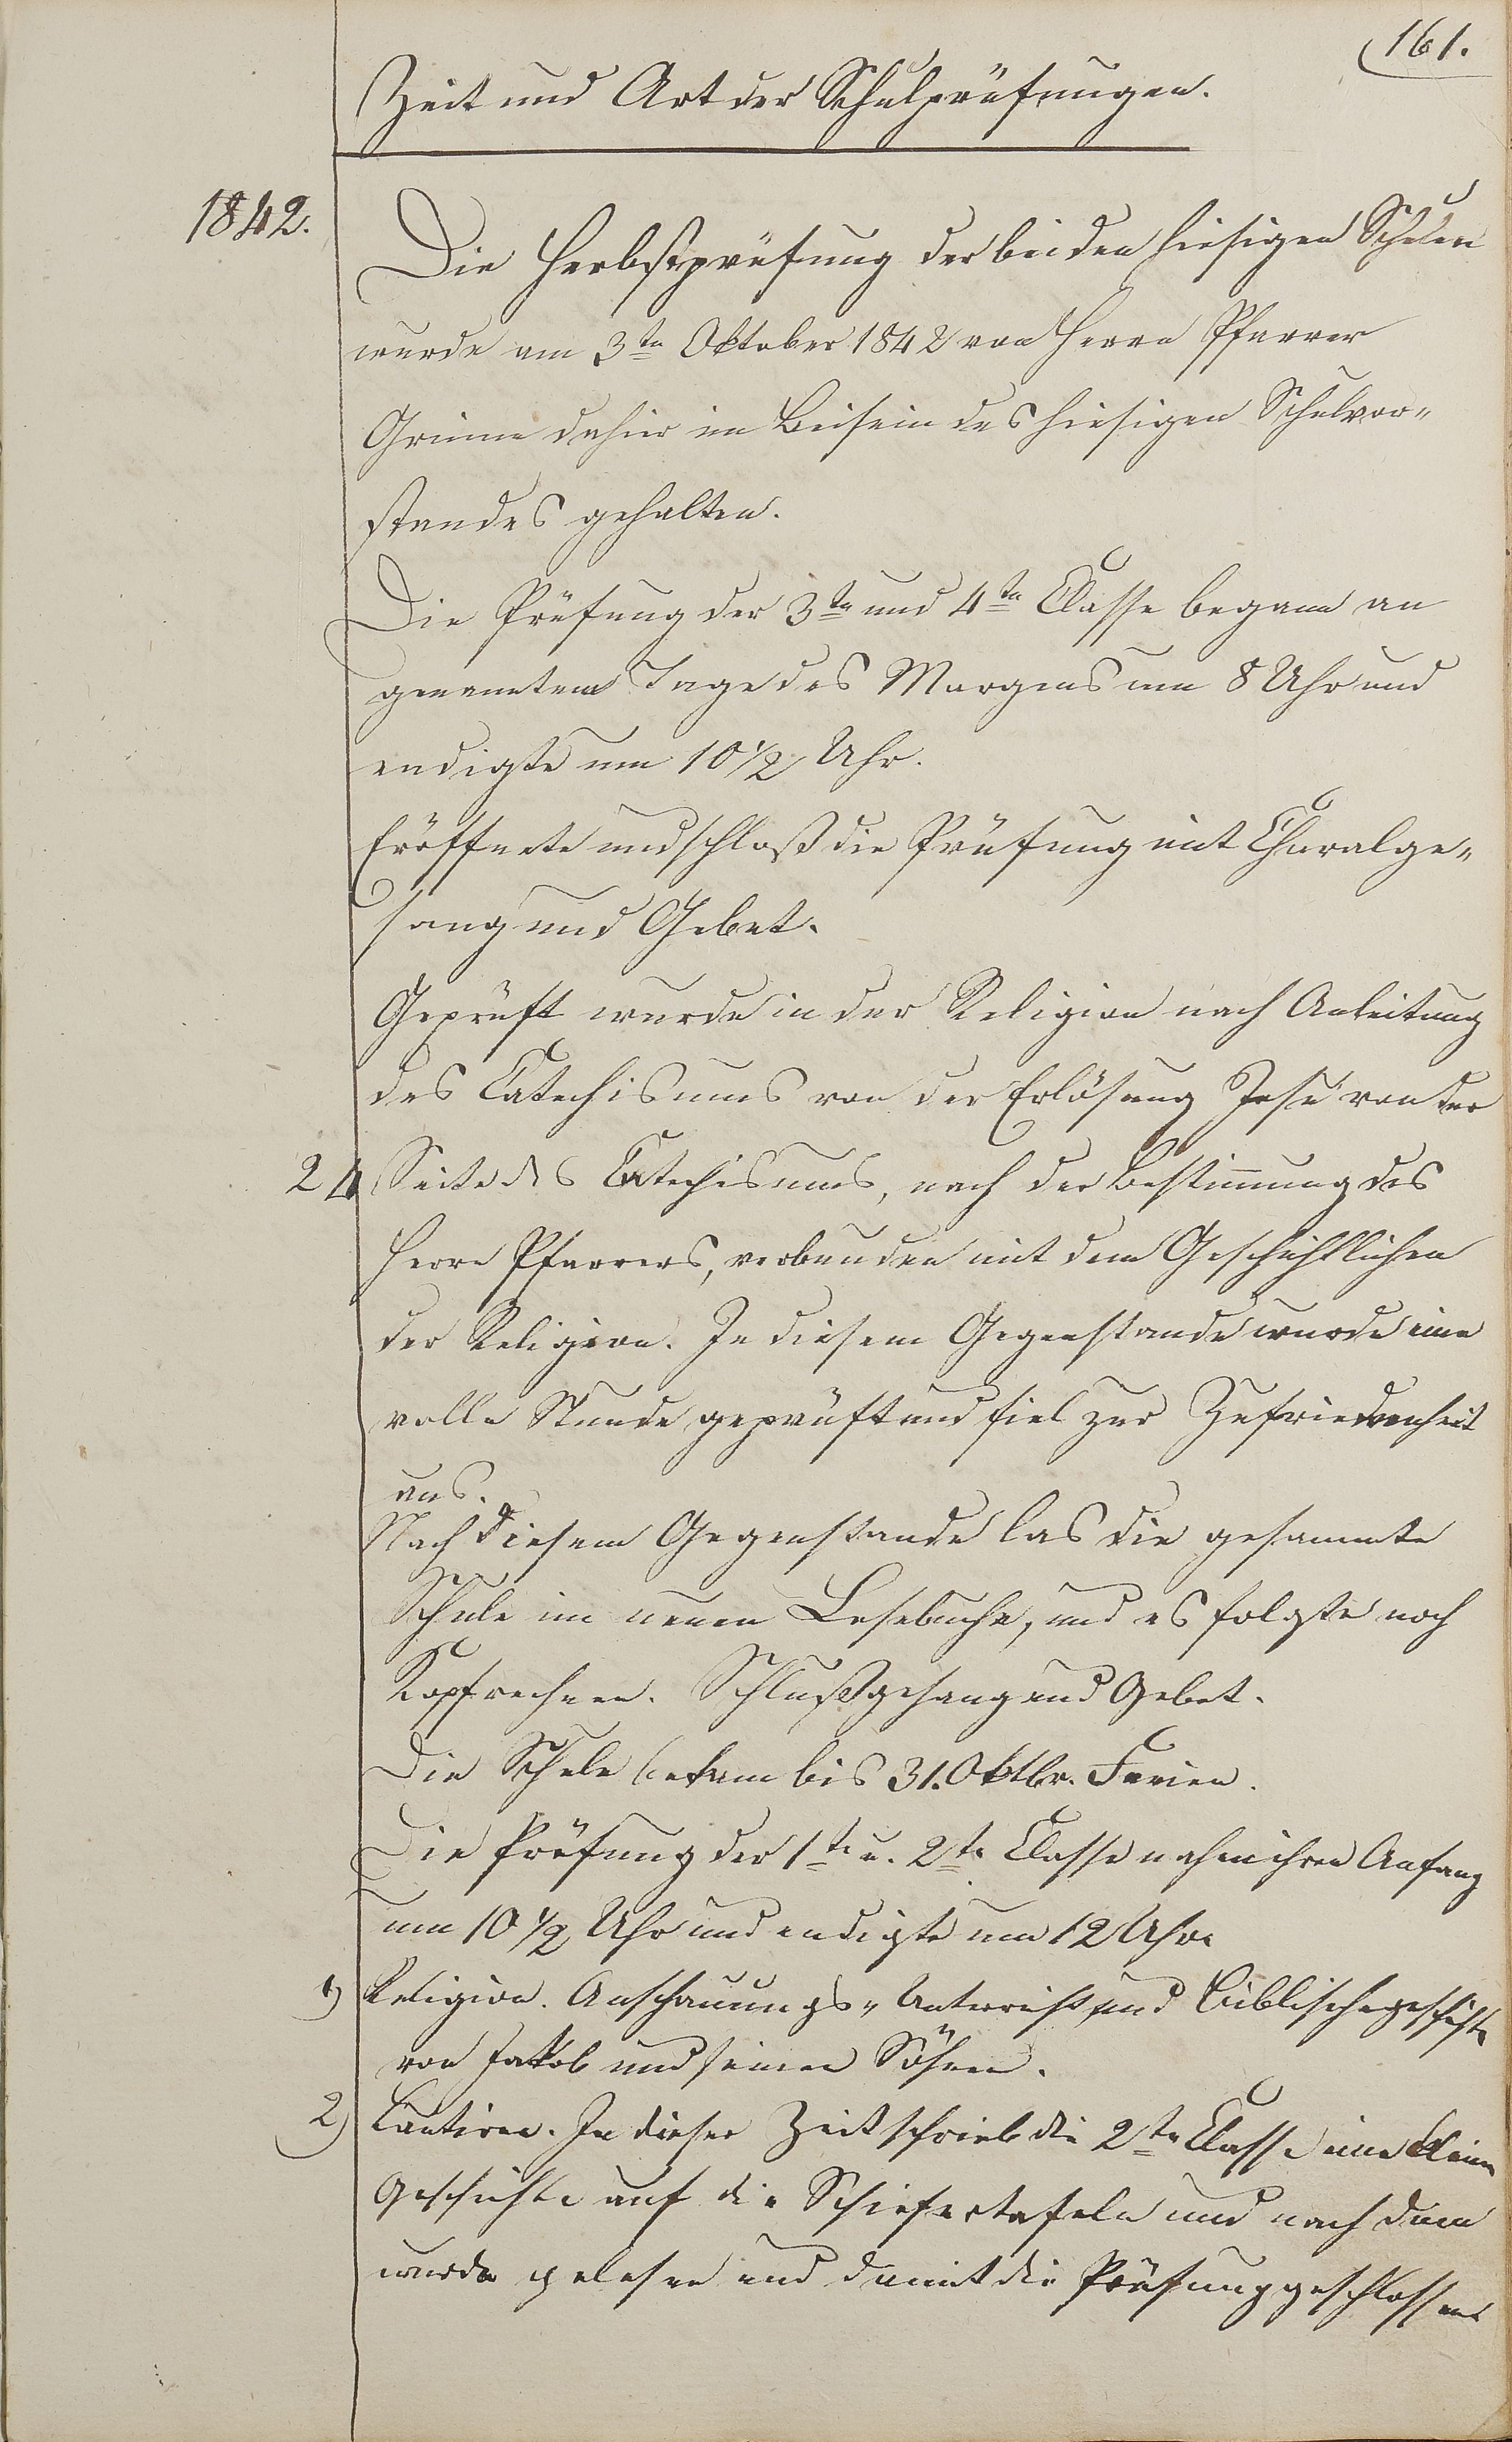 161.
Zeit und Art der Schulprüfungen.
1842.
Die Herbstprüfung der beiden hiesigen Schulen
wurde am 3ten Oktober 1842 von Herrn Pfarrer
Grimm dahier im Beisein des hiesigen Schulvor-
standes gehalten.
Die Prüfung der 3ten und 4ten Classe begann an
genanntem Tage des Morgens um 8 Uhr und
endigte um 10 1/2 Uhr.
Eröffnete und schloß die Prüfung mit Choralge-
sang und Gebet.
Geprüft wurde in der Religion nach Anleitung
des Catechismus von der Erlösung Jesu von der
24 Seite des Catechismus, nach der Bestim̄ung des
Herrn Pfarrers, verbunden mit dem Geschichtlichen
der Religion. In diesem Gegenstande wurde eine
volle Stunde geprüft und fiel zur Zufriedenheit
aus.
Nach diesem Gegenstande las die gesammte
Schule im neuen Lesebuche, und es folgte noch
Kopfrechnen. Schlußgesang und Gebet.
Die Schule bekam bis 31. Oktbr. Ferien.
Die Prüfung der 1te u. 2te Classe nahm ihren Anfang
um 10 1/2 Uhr und endigte um 12 Uhr.
1) Religion. Anschauungs-Unterricht und Biblischegeschichte
von Jakob und seinen Söhnen.
2) Lautiren. In dieser Zeit schrieb die 2te Classe eine kleine
Geschichte auf die Schiefertafeln und nach dem
wurde gelesen und damit die Prüfung geschlossen